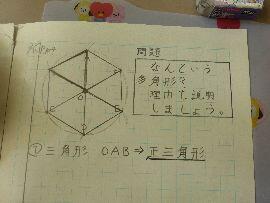 問題
なんという
多角形を
理由も説明
しましょう。
A
B
C
D
E
O
① 三角形 OAB ⇒ 正三角形